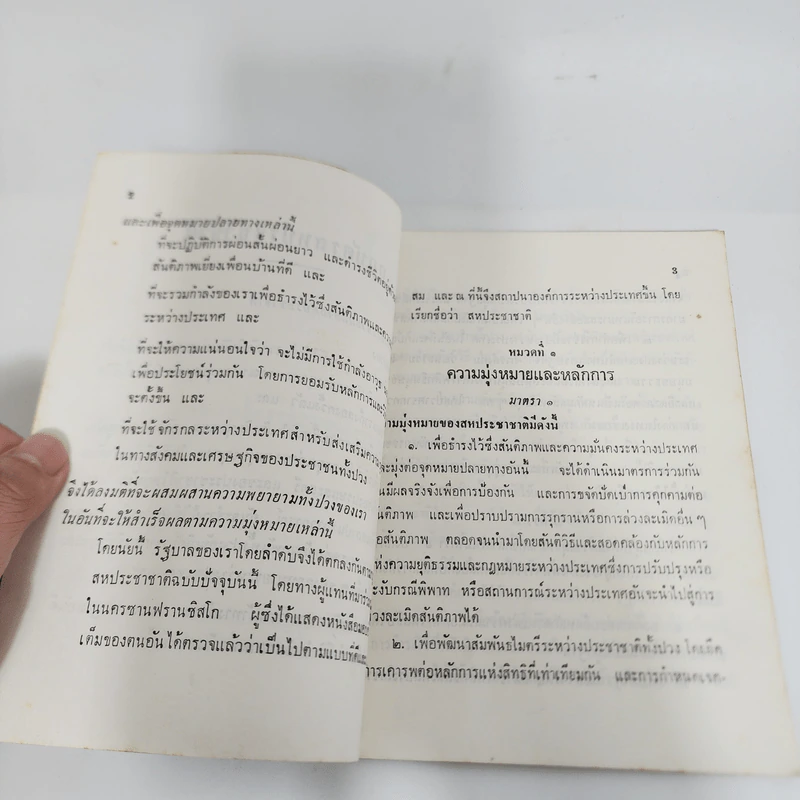 ๒
และเพื่อจุดหมายปลายทางเหล่านี้
ที่จะปฏิบัติการผ่อนสั้นผ่อนยาว และดำรงชีวิต
สันติภาพเยี่ยงเพื่อนบ้านที่ดี และ
ที่จะรวมกำลังของเราเพื่อธำรงไว้ซึ่งสันติภาพและ
ระหว่างประเทศ และ
ที่จะให้ความแน่นอนใจว่า จะไม่มีการใช้กำลังอาวุธ
เพื่อประโยชน์ร่วมกัน โดยการยอมรับหลักการและ
จะตั้งขึ้น และ
ที่จะใช้จักรกลระหว่างประเทศสำหรับส่งเสริม
ในทางสังคมและเศรษฐกิจของประชาชนทั้งปวง
จึงได้ลงมติที่จะผสมผสานความพยายามทั้งปวงของเรา
ในอันที่จะให้สำเร็จผลตามความมุ่งหมายเหล่านี้
โดยนัยนี้ รัฐบาลของเราโดยลำดับจึงได้ตกลงกัน
สหประชาชาติฉบับปัจจุบันนี้ โดยทางผู้แทนที่มา
ในนครซานฟรานซิสโก ผู้ซึ่งได้แสดงหนังสือ
เต็มของตนอันได้ตรวจแล้วว่าเป็นไปตามแบบที่ดี
๓
สม และ ณ ที่นี้จึงสถาปนาองค์การระหว่างประเทศขึ้น โดย
เรียกชื่อว่า สหประชาชาติ
หมวดที่ ๑
ความมุ่งหมายและหลักการ
มาตรา ๑
วามมุ่งหมายของสหประชาชาติมีดังนี้
๑. เพื่อธำรงไว้ซึ่งสันติภาพและความมั่นคงระหว่างประเทศ
ละมุ่งต่อจุดหมายปลายทางอันนี้ จะได้ดำเนินมาตรการร่วมกัน
นมีผลจริงจังเพื่อการป้องกัน และการขจัดปัดเป่าการคุกคามต่อ
ันติภาพ และเพื่อปราบปรามการรุกรานหรือการล่วงละเมิดอื่น ๆ
่อสันติภาพ ตลอดจนนำมาโดยสันติวิธีและสอดคล้องกับหลักการ
ห่งความยุติธรรมและกฎหมายระหว่างประเทศซึ่งการปรับปรุงหรือ
ะงับกรณีพิพาท หรือสถานการณ์ระหว่างประเทศอันจะนำไปสู่การ
่วงละเมิดสันติภาพได้
๒. เพื่อพัฒนาสัมพันธไมตรีระหว่างประชาชาติทั้งปวง โดยยึด
การเคารพต่อหลักการแห่งสิทธิที่เท่าเทียมกัน และการกำหนด